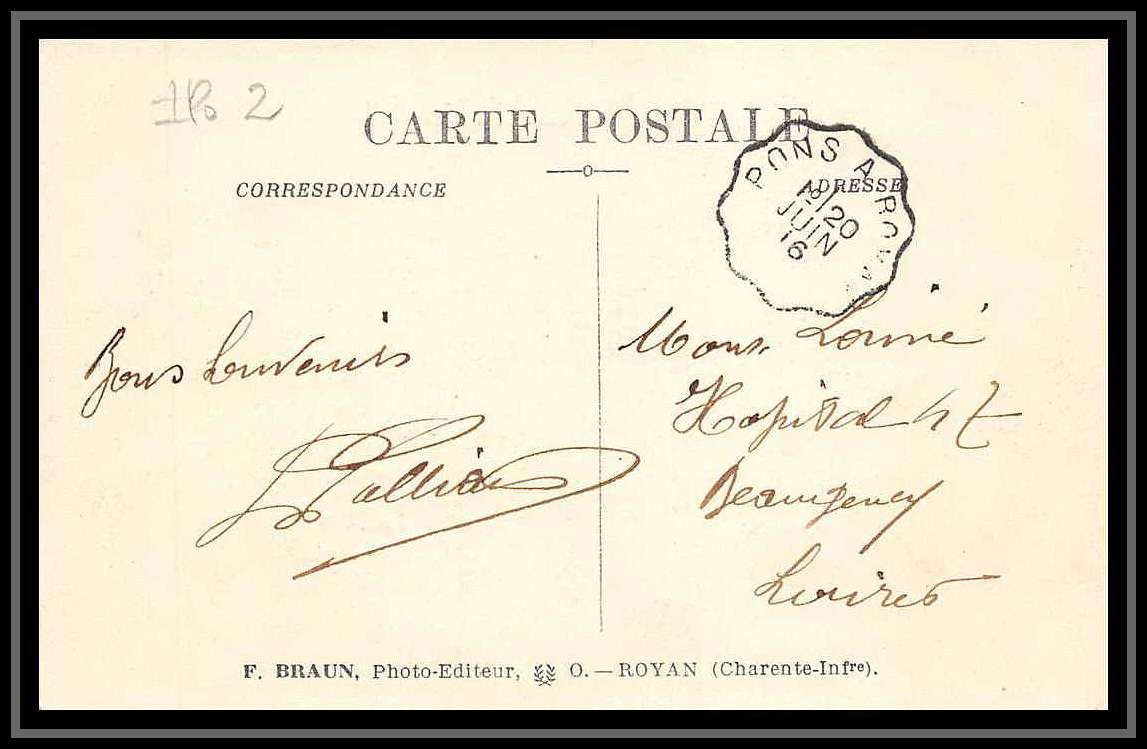 2
CARTE POSTALE
CORRESPONDANCE
ADRESSE
PONS A ROYA
20
JUIN
16
Bons Souvenirs
Mons. Lainé
Hopital 47
Beaugency
Loiret
F. BRAUN, Photo-Editeur, O. — ROYAN (Charente-Infre).